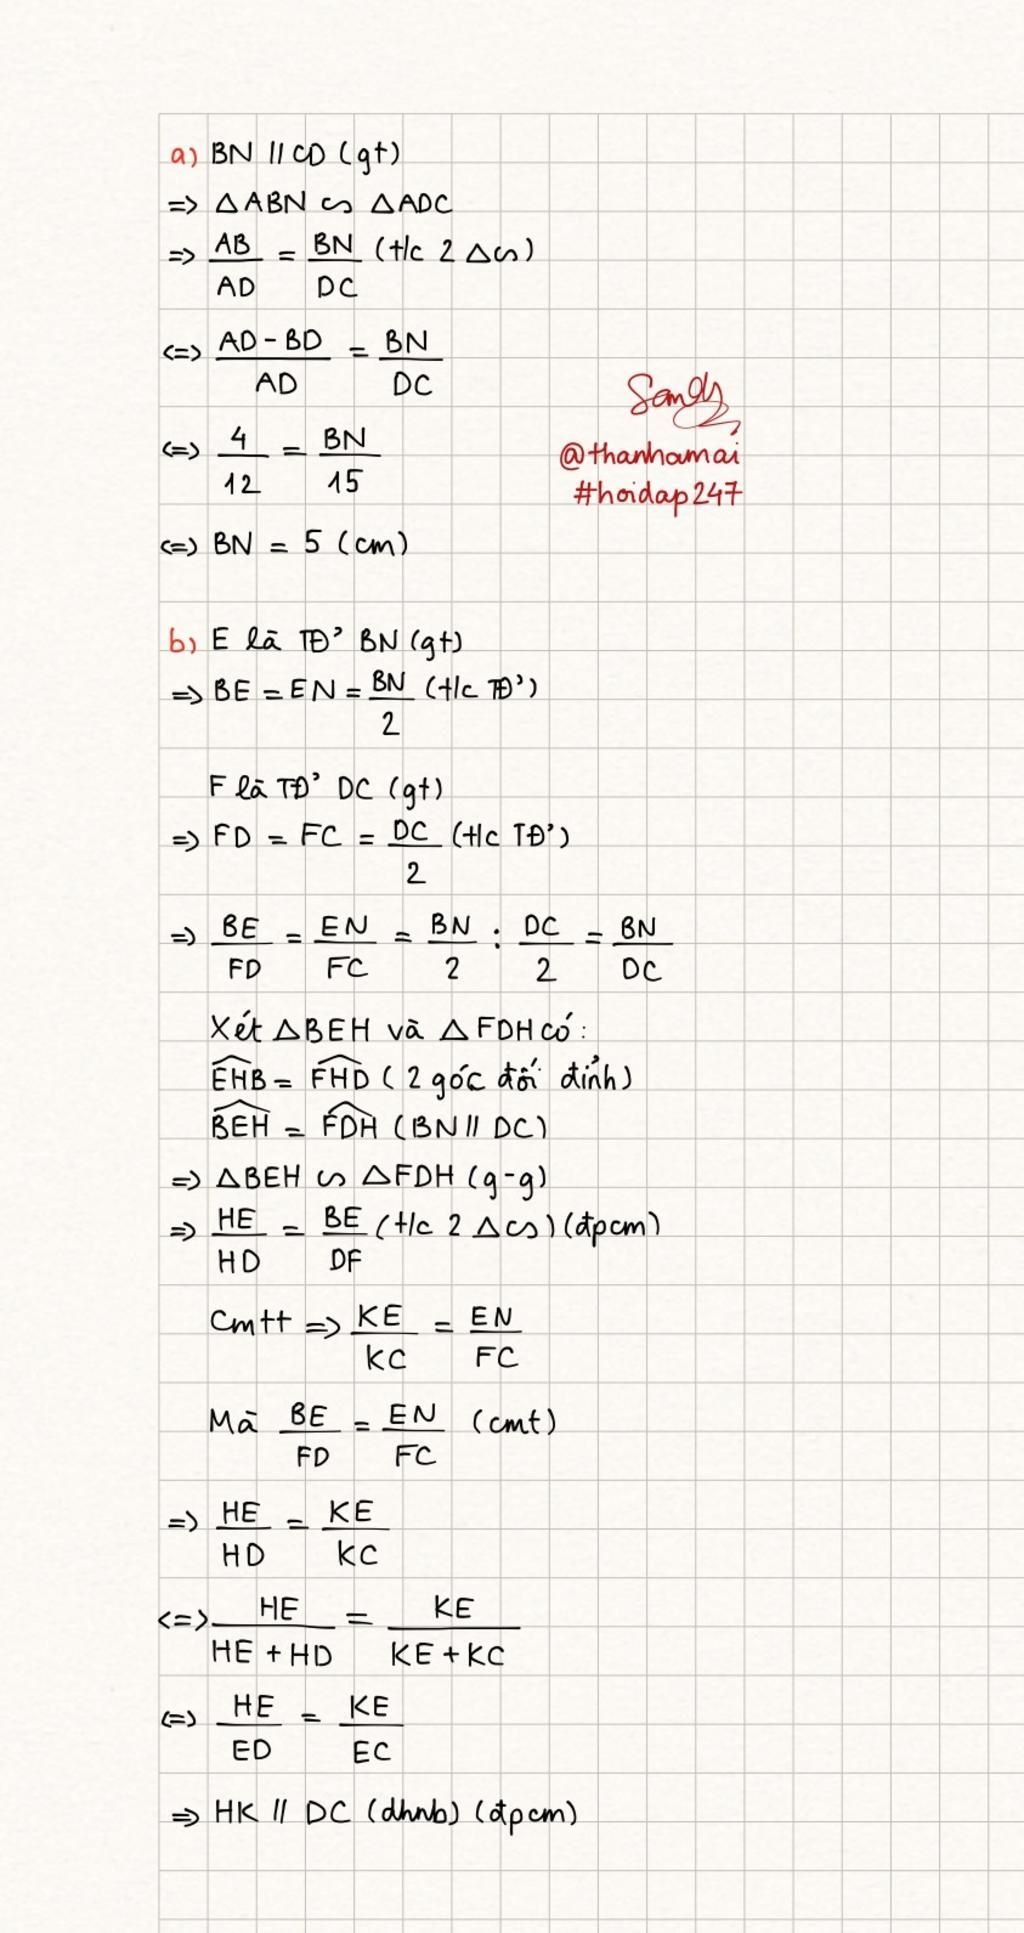 a) BN // CD (gt)
=> △ABN ∽ △ADC
=> AB/AD = BN/DC (t/c 2 △∽)
<=> AD - BD/AD = BN/DC
<=> 4/12 = BN/15
<=> BN = 5 (cm)
Sandy
@thanhamai
#hoidap247
b) E là TĐ' BN (gt)
=> BE = EN = BN/2 (t/c TĐ')
F là TĐ' DC (gt)
=> FD = FC = DC/2 (t/c TĐ')
=> BE/FD = EN/FC = BN/2 : DC/2 = BN/DC
Xét △BEH và △FDH có:
EHB = FHD (2 góc đối đỉnh)
BEH = FDH (BN // DC)
=> △BEH ∽ △FDH (g-g)
=> HE/HD = BE/DF (t/c 2 △∽) (đpcm)
Cmtt => KE/KC = EN/FC
Mà BE/FD = EN/FC (cmt)
=> HE/HD = KE/KC
<=> HE/HE + HD = KE/KE + KC
<=> HE/ED = KE/EC
=> HK // DC (dhnb) (đpcm)